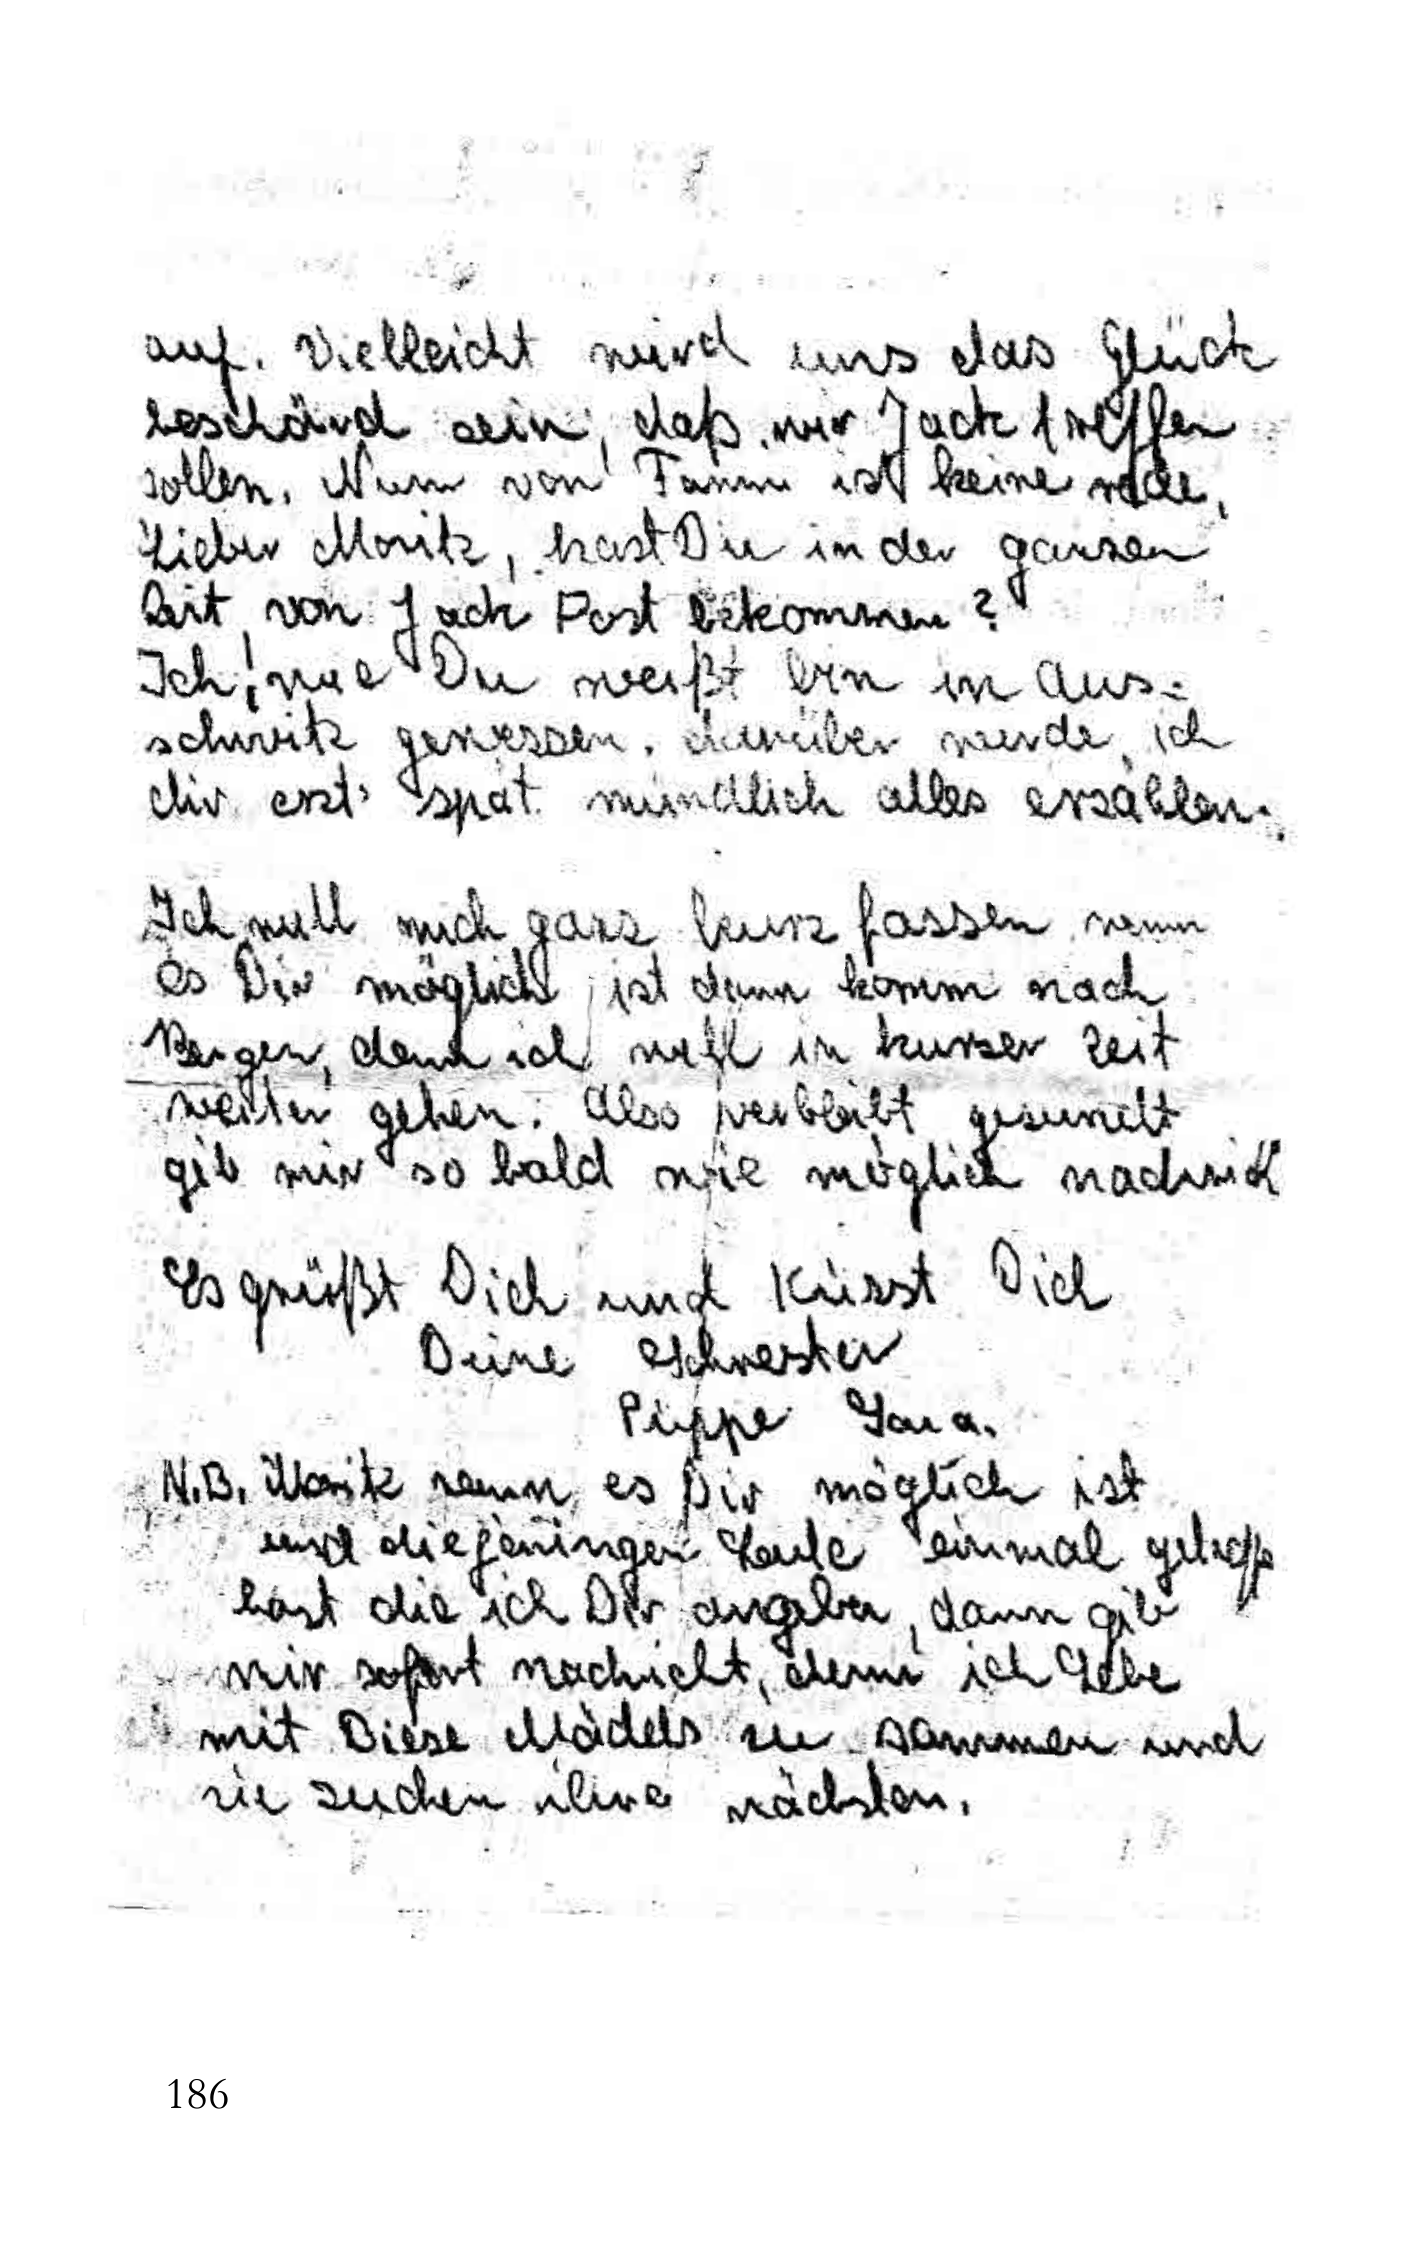 auf. Vielleicht wird uns das Glück
beschärd sein, daß wir Jack treffen
sollen. Nun von ist keine rede,
Lieber Moritz, hast Du in der ganzen
Zeit von Jack Post bekommen?
Ich, wie Du weißt bin in Aus=
schwitz gewessen. darüber werde ich
dir erst spät mündlich alles erzählen.
Ich will mich ganz kurz fassen wenn
es Dir möglich ist dann komm nach
Bergen, denn ich will in kurzer Zeit
weiter gehen. Also verbleibt gesundt
gib mir so bald wie möglich
Es grüßt Dich und Küsst Dich
Deine Schwester
N.B. Moritz wenn es Dir möglich ist
und diejeningen Leute einmal
hast die ich Dir angeben, dann gib
mir sofort nachricht, denn ich Lebe
mit Diese Mädels zu sammen und
sie suchen ihre nächsten.
186